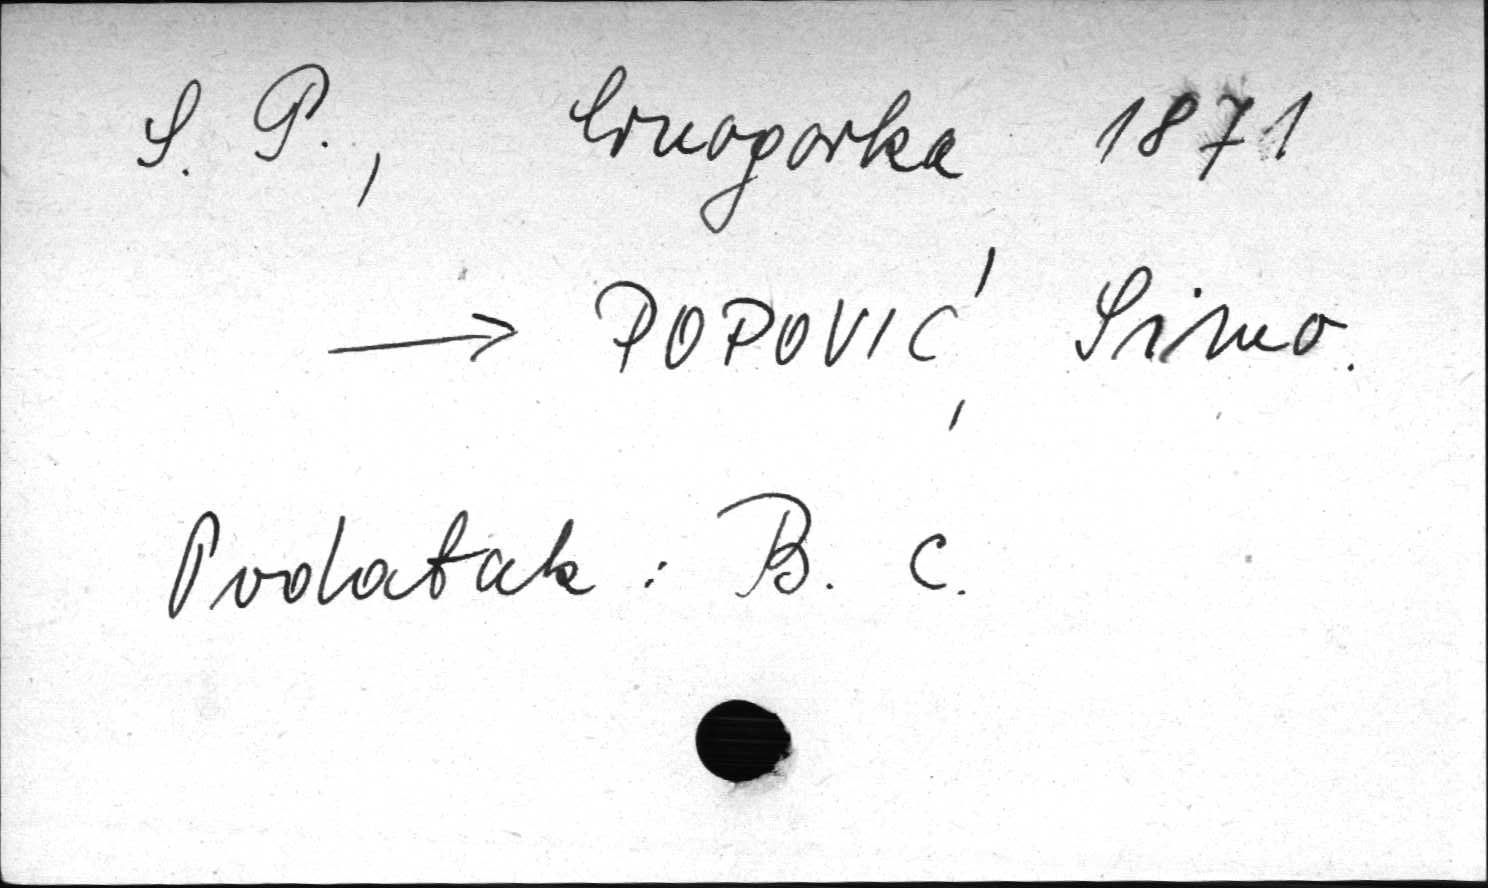 S. P., Crnogorka 1871
→ POPOVIĆ, Simo.
Podatak: B. C.